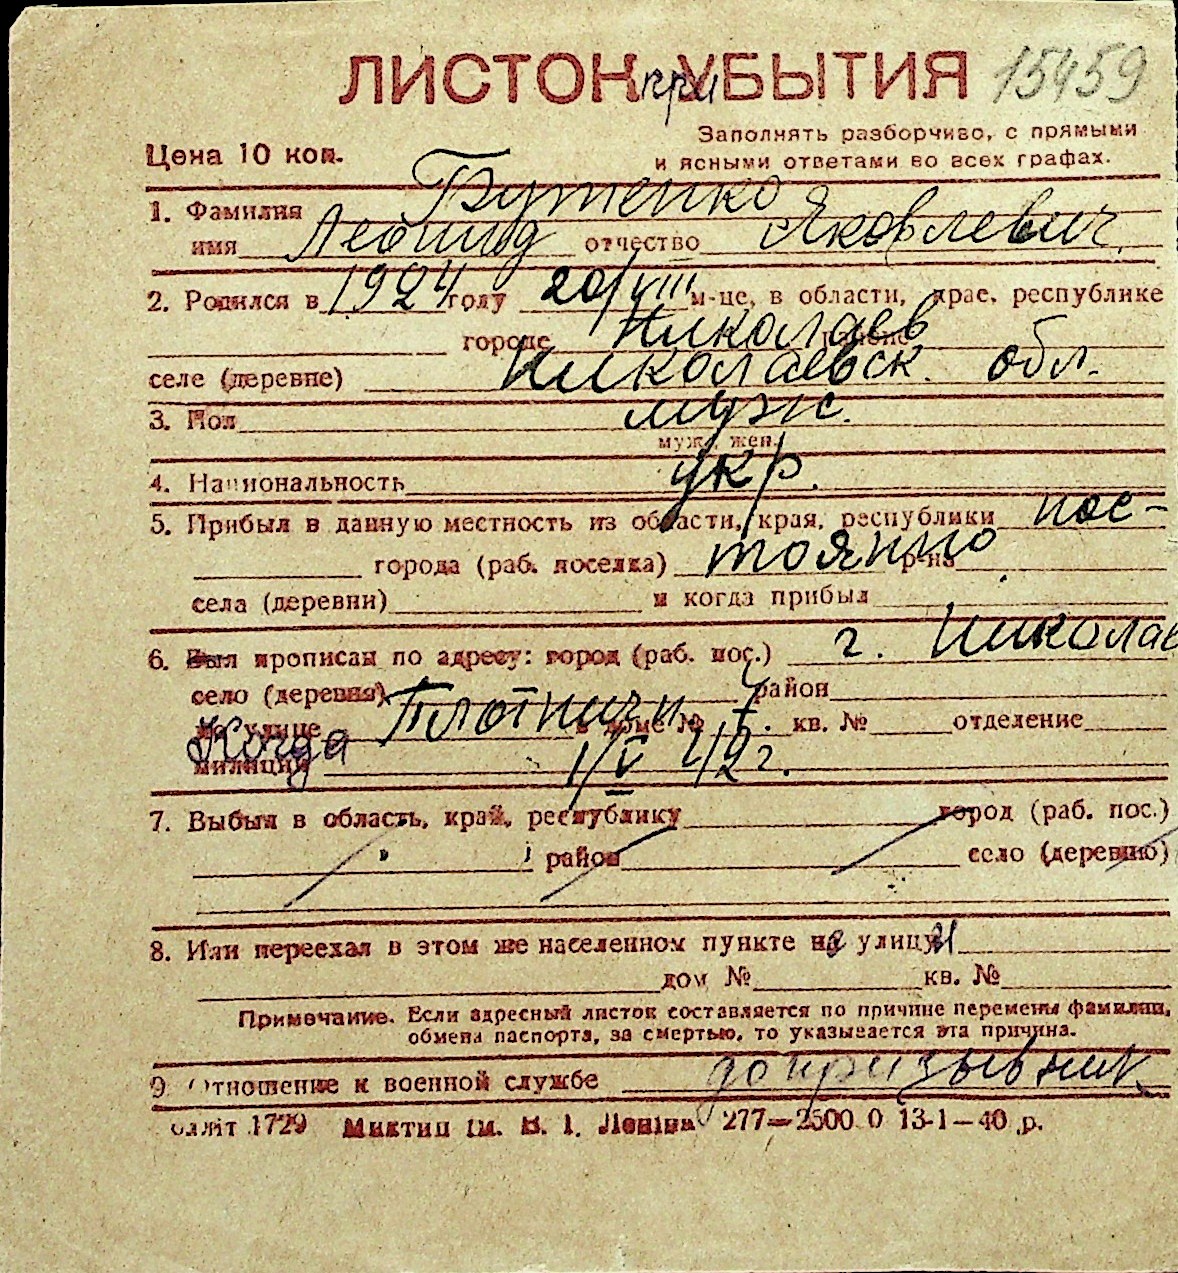 ЛИСТОК УБЫТИЯ 15459
при
Заполнять разборчиво, с прямыми
Цена 10 коп. и ясными ответами во всех графах.
1. Фамилия Бутенко
имя Леонид отчество Яковлевич
2. Родился в 1924 году 20/VIII м-це, в области, крае, республике
городе Николаев районе
селе (деревне) Николаевск. обл.
3. Пол муж.
муж., жен.
4. Национальность укр.
5. Прибыл в данную местность из области, края, республики пос-
города (раб. поселка) тоянно р-на
села (деревни) и когда прибыл
6. Был прописан по адресу: город (раб. пос.) г. Николаев
село (деревня) район
на улице Плотничн в доме № 7. кв. № отделение
Когда
милиции 1/V 42г.
7. Выбыл в область, край, республику город (раб. пос.)
район село (деревню)
8. Или переехал в этом же населенном пункте на улицу
дом № кв. №
Примечание. Если адресный листок составляется по причине перемены фамилии,
обмена паспорта, за смертью, то указывается эта причина.
9. Отношение к военной службе допризывник
1729 Миктип ім. В. І. Леніна 277—2500 0 13-1—40 р.